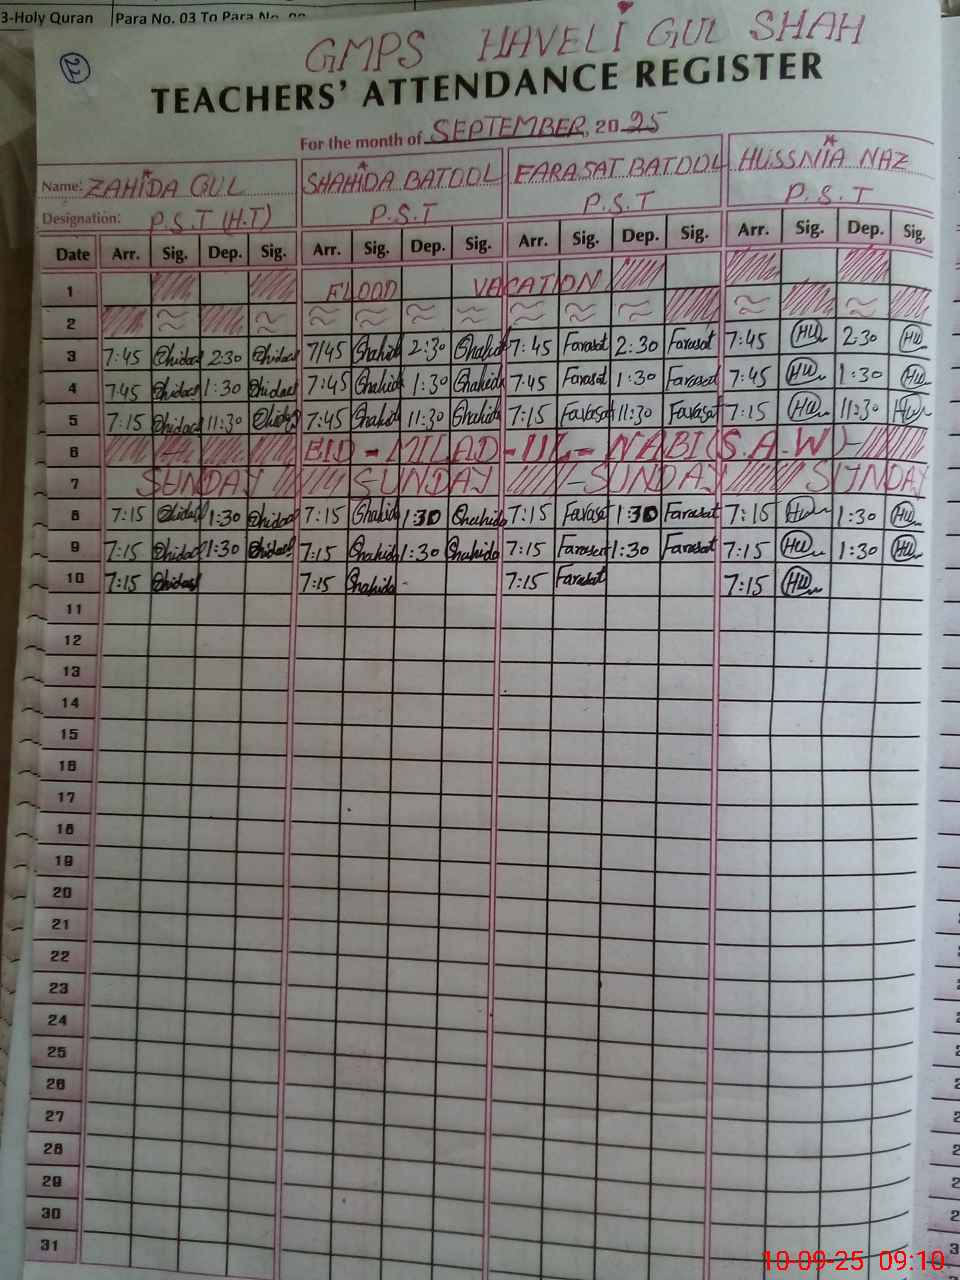 3-Holy Quran Para No. 03 To Para No.
22
GMPS HAVELI GUL SHAH
TEACHERS' ATTENDANCE REGISTER
For the month of SEPTEMBER, 2025
Name: ZAHIDA GUL SHAHIDA BATOOL FARASAT BATOOL HUSSNIA NAZ
Designation: P.S.T (H.T) P.S.T P.S.T P.S.T
Date Arr. Sig. Dep. Sig. Arr. Sig. Dep. Sig. Arr. Sig. Dep. Sig. Arr. Sig. Dep. Sig.
1 FLOOD VACATION
2
3 7:45 2:30 7/45 Shahida 2:30 Shahida 7:45 Farasat 2:30 Farasat 7:45 2:30
4 7:45 1:30 7:45 Shahida 1:30 Shahida 7:45 Farasat 1:30 Farasat 7:45 1:30
5 7:15 11:30 7:45 Shahida 11:30 Shahida 7:15 Farasat 11:30 Farasat 7:15 11:30
6 EID - MILAD - UL - NABI (S.A.W) -
7 SUNDAY SUNDAY - SUNDAY SUNDAY
8 7:15 1:30 7:15 Shahida 1:30 Shahida 7:15 Farasat 1:30 Farasat 7:15 1:30
9 7:15 1:30 7:15 Shahida 1:30 Shahida 7:15 Farasat 1:30 Farasat 7:15 1:30
10 7:15 7:15 Shahida 7:15 Farasat 7:15
11
12
13
14
15
16
17
18
19
20
21
22
23
24
25
26
27
28
29
30
31
10-09-25 09:10